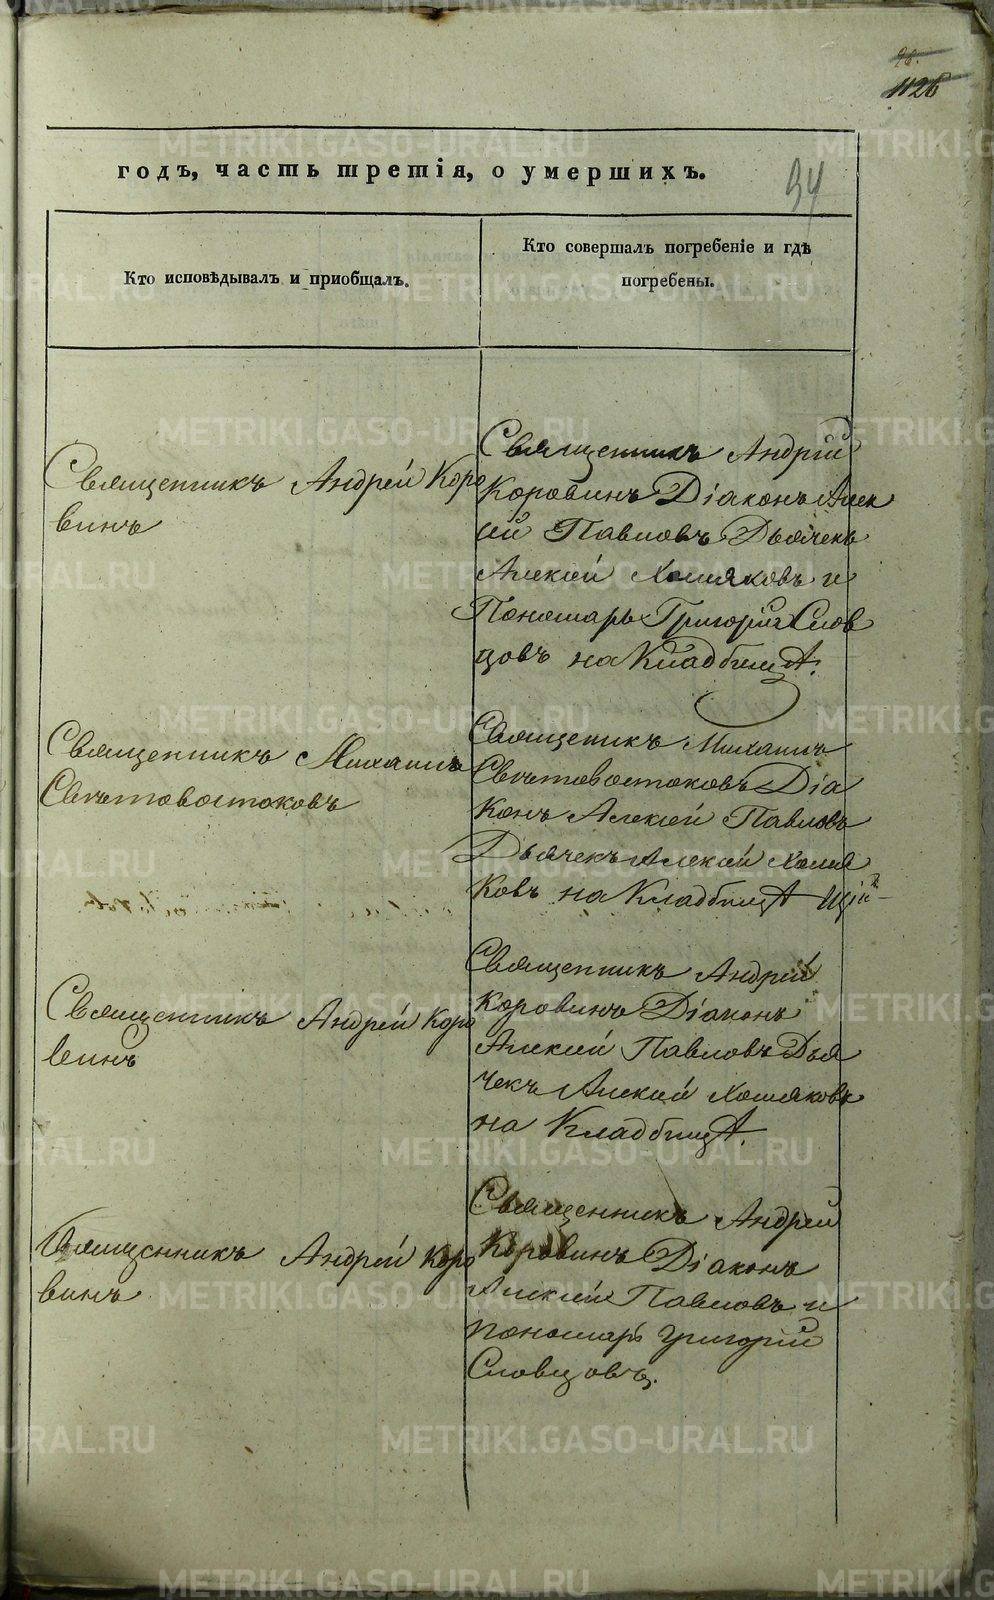 98.
1126
34
годъ, часть третія, о умершихъ.
Кто исповѣдывалъ и приобщалъ.
Кто совершалъ погребеніе и гдѣ
погребены.
Священникъ Андрей Коро
винъ
Священникъ Андрій
Коровинъ Діаконъ Алек
ѣй Павловъ Дьячекъ
Алексѣй Хомяковъ и
Пономарь Григорій Слов
цовъ на Кладбищѣ.
Священникъ Михаилъ
Свѣтовостоковъ
Священникъ Михаилъ
Свѣтовостоковъ Діа
конъ Алексѣй Павловъ
Дьячекъ Алексѣй Хомя
ковъ на Кладбищѣ
Священникъ Андрей Коро
винъ
Священникъ Андрей
Коровинъ Діаконъ
Алексѣй Павловъ Дья
чекъ Алексѣй Хомяковъ
на Кладбищѣ.
Священникъ Андрей Коро
винъ
Священникъ Андрей
Коровинъ Діаконъ
Алексѣй Павловъ и
пономарь Григорій
Словцовъ.
METRIKI.GASO-URAL.RU